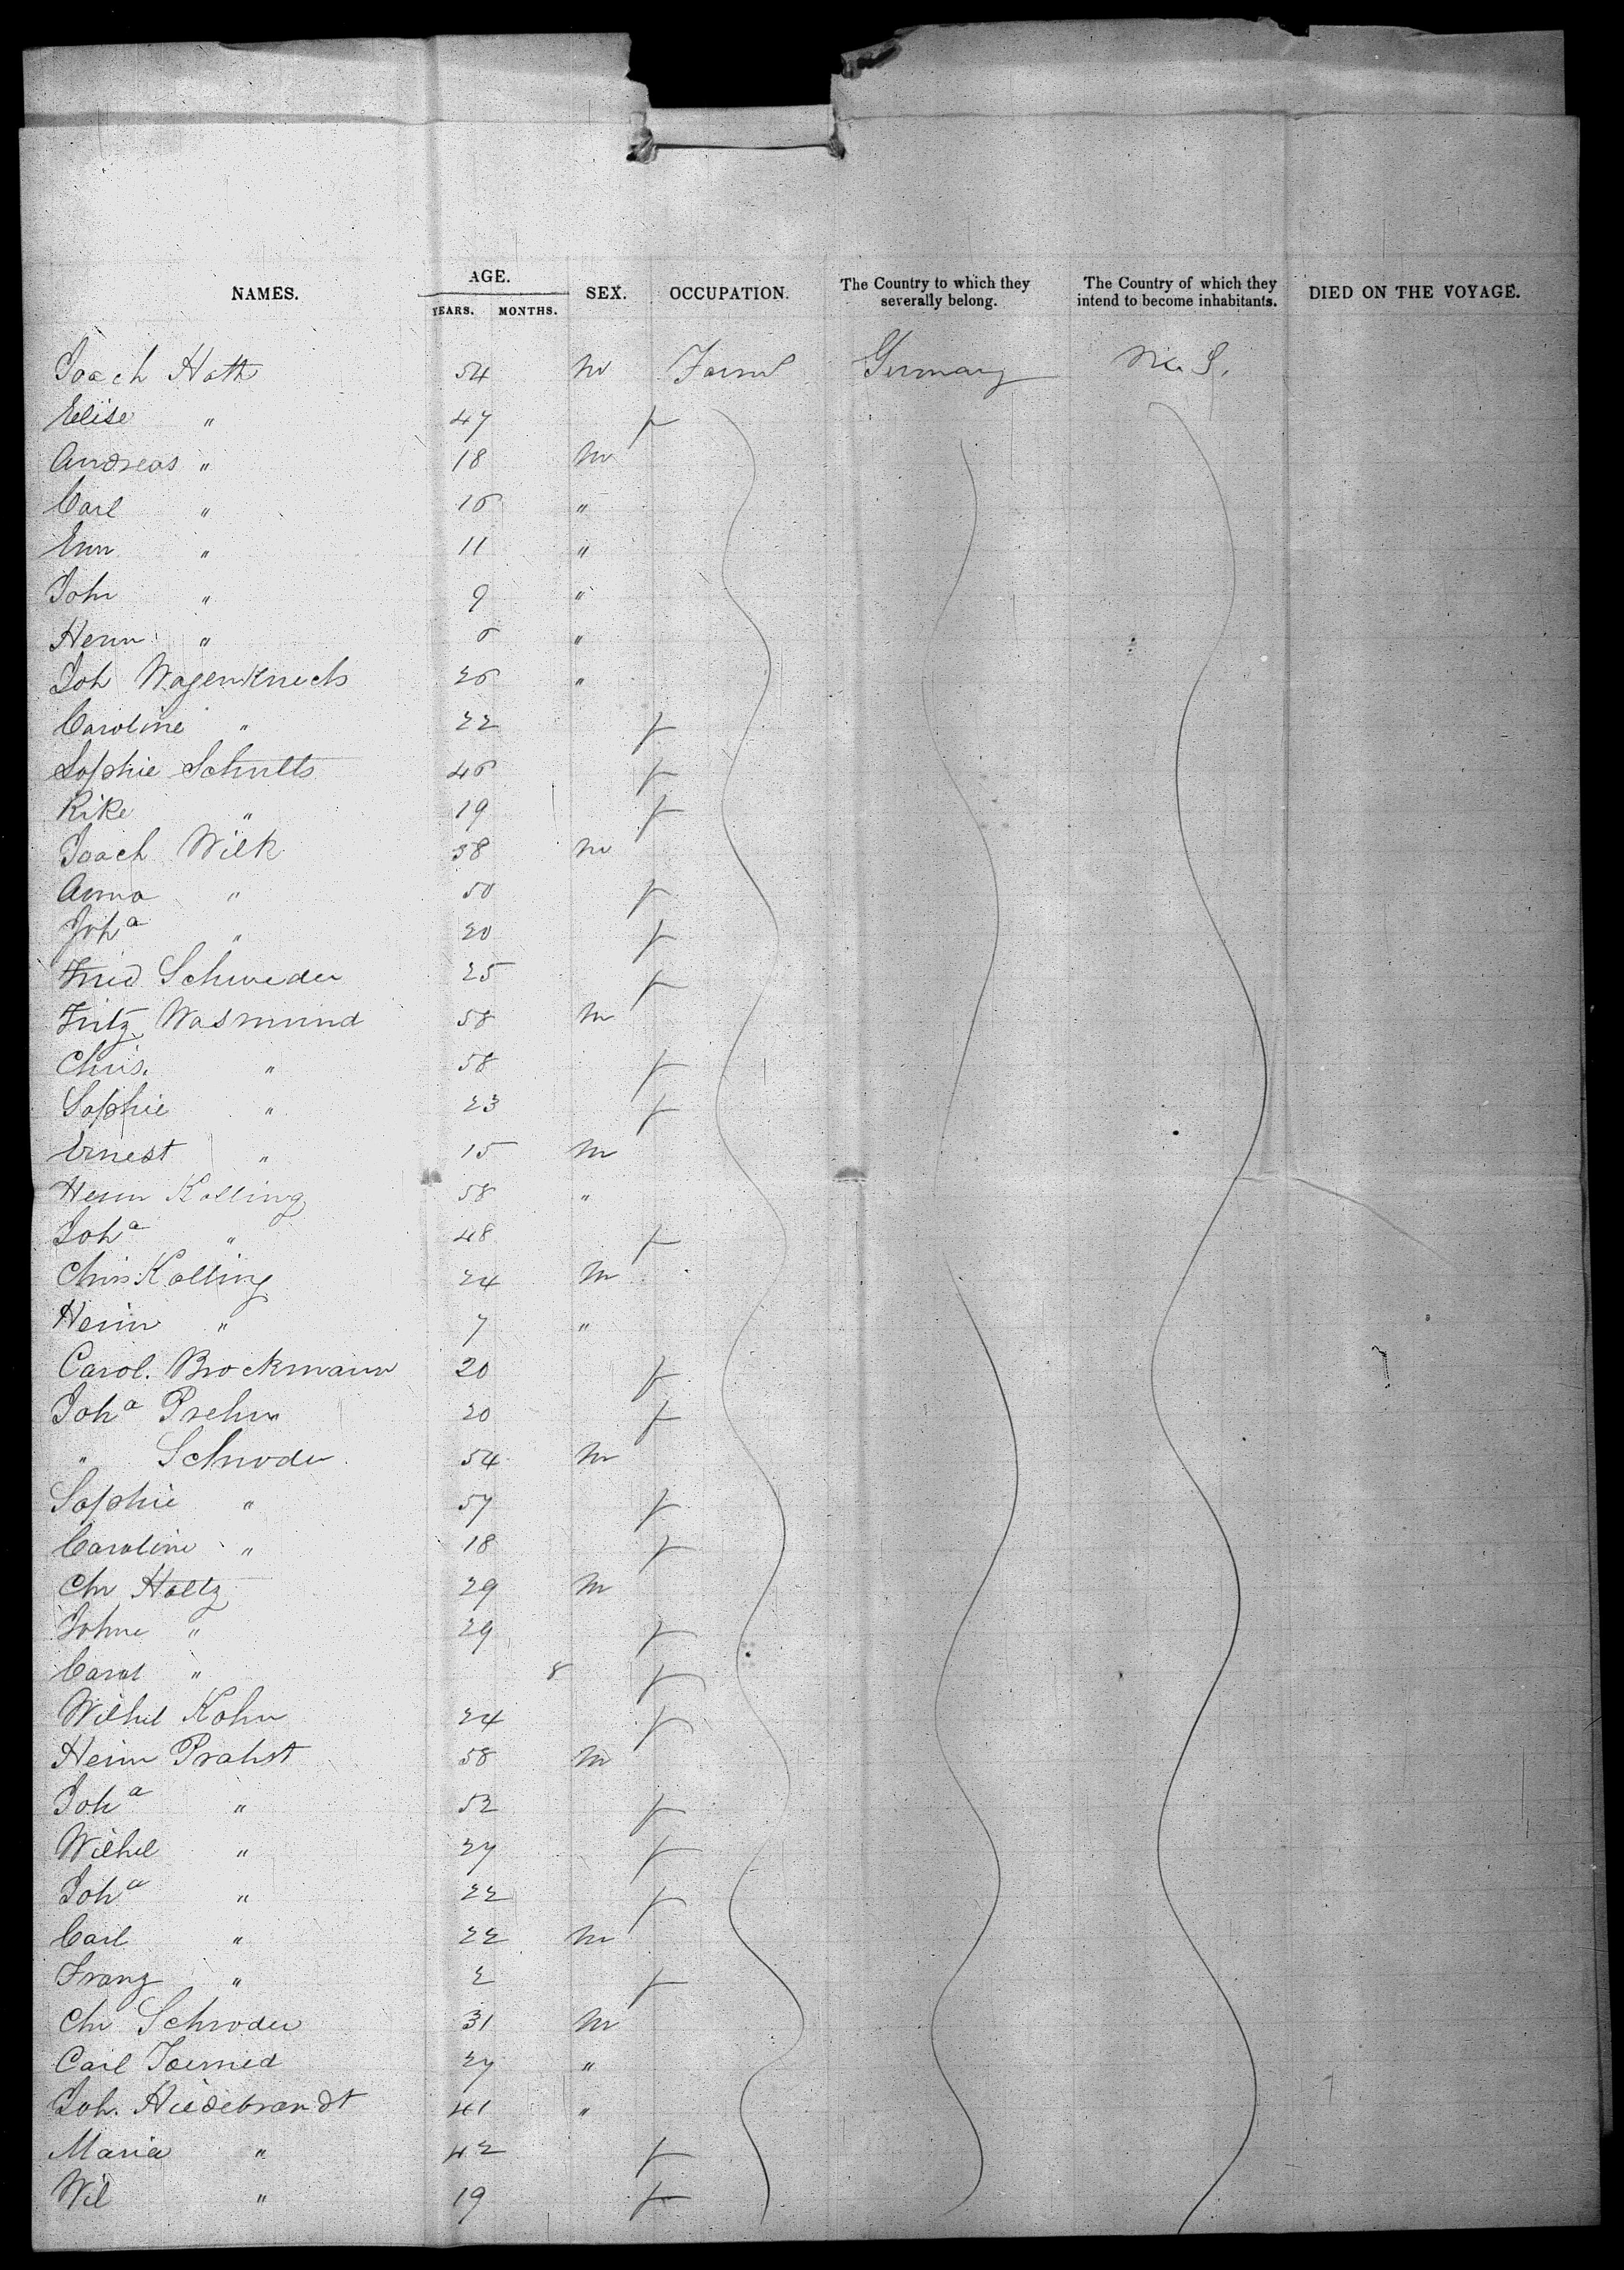 NAMES. AGE. SEX. OCCUPATION. The Country to which they severally belong. The Country of which they intend to become inhabitants. DIED ON THE VOYAGE.
YEARS. MONTHS.
Joach Hoth 54 m Farmer Germany U. S.
Elise " 47 f
Andreas " 18 m
Carl " 16 "
Enn " 11 "
John " 9 "
Henn " 6 "
Joh Wagenknecht 26 "
Caroline " 22 f
Sophie Schults 46 f
Rike " 19 f
Joach Wilk 58 m
Anna " 50 f
Joh a " 20 f
Fried Schweder 25 f
Fritz Wasmund 58 m
Chris. " 58 f
Sophie " 23 f
Ernest " 15 m
Henn Kolling 58 "
Joh a " 48 f
Chris Kolling 24 m
Henn " 7 "
Carol. Brockmann 20 f
Joh a Prehn 20 f
" Schroder 54 m
Sophie " 57 f
Caroline " 18 f
Chr Holtz 29 m
Johne " 29 f
Carol " 8 f
Wilhel Kohn 24 f
Henn Prahst 58 m
Joh a " 52 f
Wilhel " 27 f
Joh a " 22 f
Carl " 22 m
Franz " 2 f
Chr Schroder 31 m
Carl 27 "
Joh. Hildebrandt 41 "
Maria " 42 f
Wil " 19 f